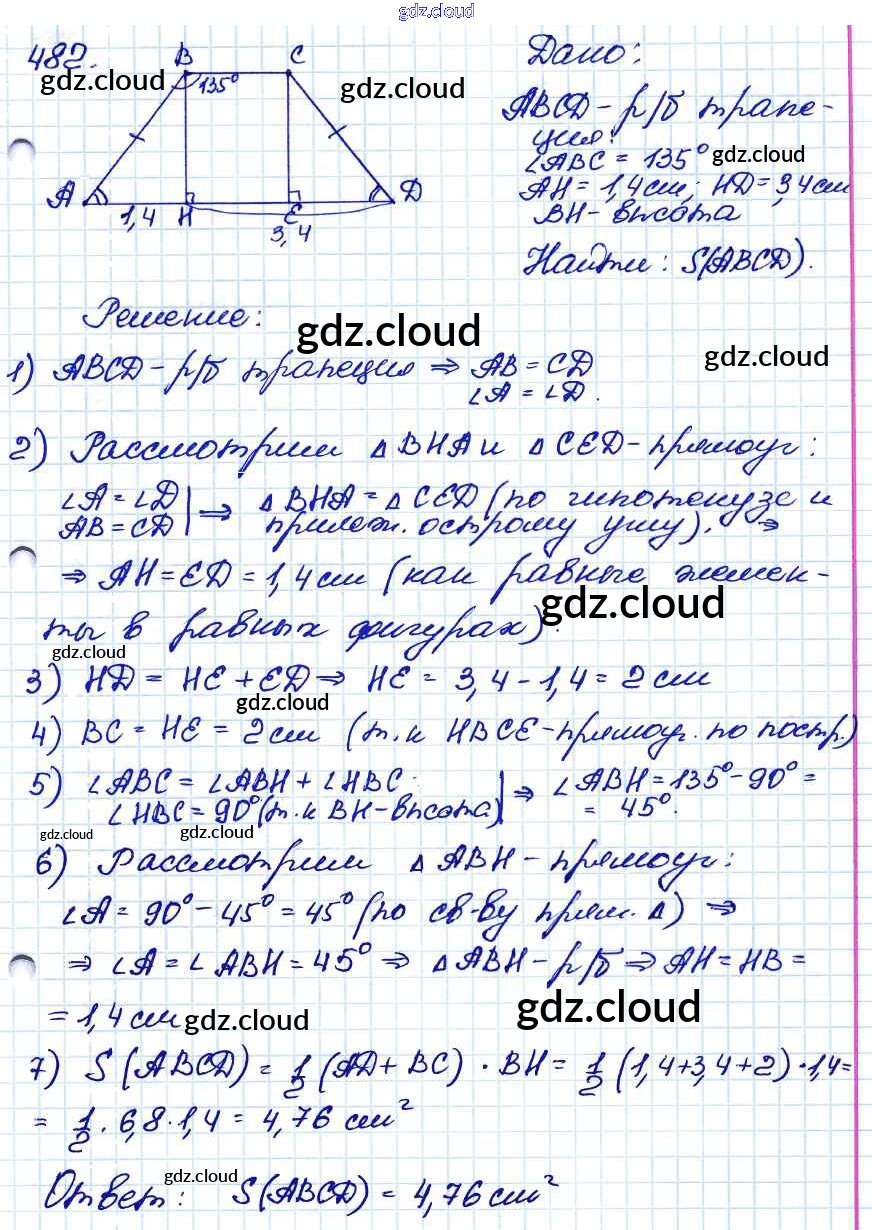 gdz.cloud
482.
B C
135°
A 1,4 H E D
3,4
Дано:
ABCD - р/б трапе-
ция!
∠ABC = 135°
AH = 1,4 см; HD = 3,4 см
BH - высота
Найти: S(ABCD).
gdz.cloud
gdz.cloud
gdz.cloud
Решение:
gdz.cloud
gdz.cloud
1) ABCD - р/б трапеция ⇒ AB = CD
∠A = ∠D.
2) Рассмотрим △BHA и △CED - прямоуг:
∠A = ∠D | ⇒ △BHA = △CED (по гипотенузе и
AB = CD | прилеж. острому углу). ⇒
⇒ AH = ED = 1,4 см (как равные элемен-
gdz.cloud
ты в равных фигурах).
gdz.cloud
3) HD = HE + ED ⇒ HE = 3,4 - 1,4 = 2 см
gdz.cloud
4) BC = HE = 2 см (т.к HBCE - прямоуг. по постр.)
5) ∠ABC = ∠ABH + ∠HBC | ⇒ ∠ABH = 135° - 90° =
∠HBC = 90° (т.к BH - высота) | = 45°.
gdz.cloud
gdz.cloud
6) Рассмотрим △ABH - прямоуг:
∠A = 90° - 45° = 45° (по св-ву прям. △) ⇒
⇒ ∠A = ∠ABH = 45° ⇒ △ABH - р/б ⇒ AH = HB =
= 1,4 см
gdz.cloud
gdz.cloud
7) S(ABCD) = 1/2 (AD + BC) · BH = 1/2 (1,4+3,4+2) · 1,4 =
= 1/2 · 6,8 · 1,4 = 4,76 см²
gdz.cloud
Ответ: S(ABCD) = 4,76 см²